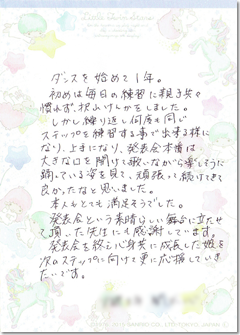 Little Twin Stars
ダンスを始めて1年。
初めは毎日の練習に親子共々
慣れず、沢山けんかをしました。
しかし練り返し何度も同じ
ステップを練習する事で出来る様に
なり、上手になり、発表会本番は
大きな口を開けて歌いながら楽しそうに
踊っている姿を見て、頑張って続けてきて
良かったなと思いました。
本人もとても満足そうでした。
発表会という素晴らしい舞台に立たせ
て頂いた先生にも感謝しています。
発表会を終え心身共に成長した娘を
次のステップに向けて更に応援していき
たいです。